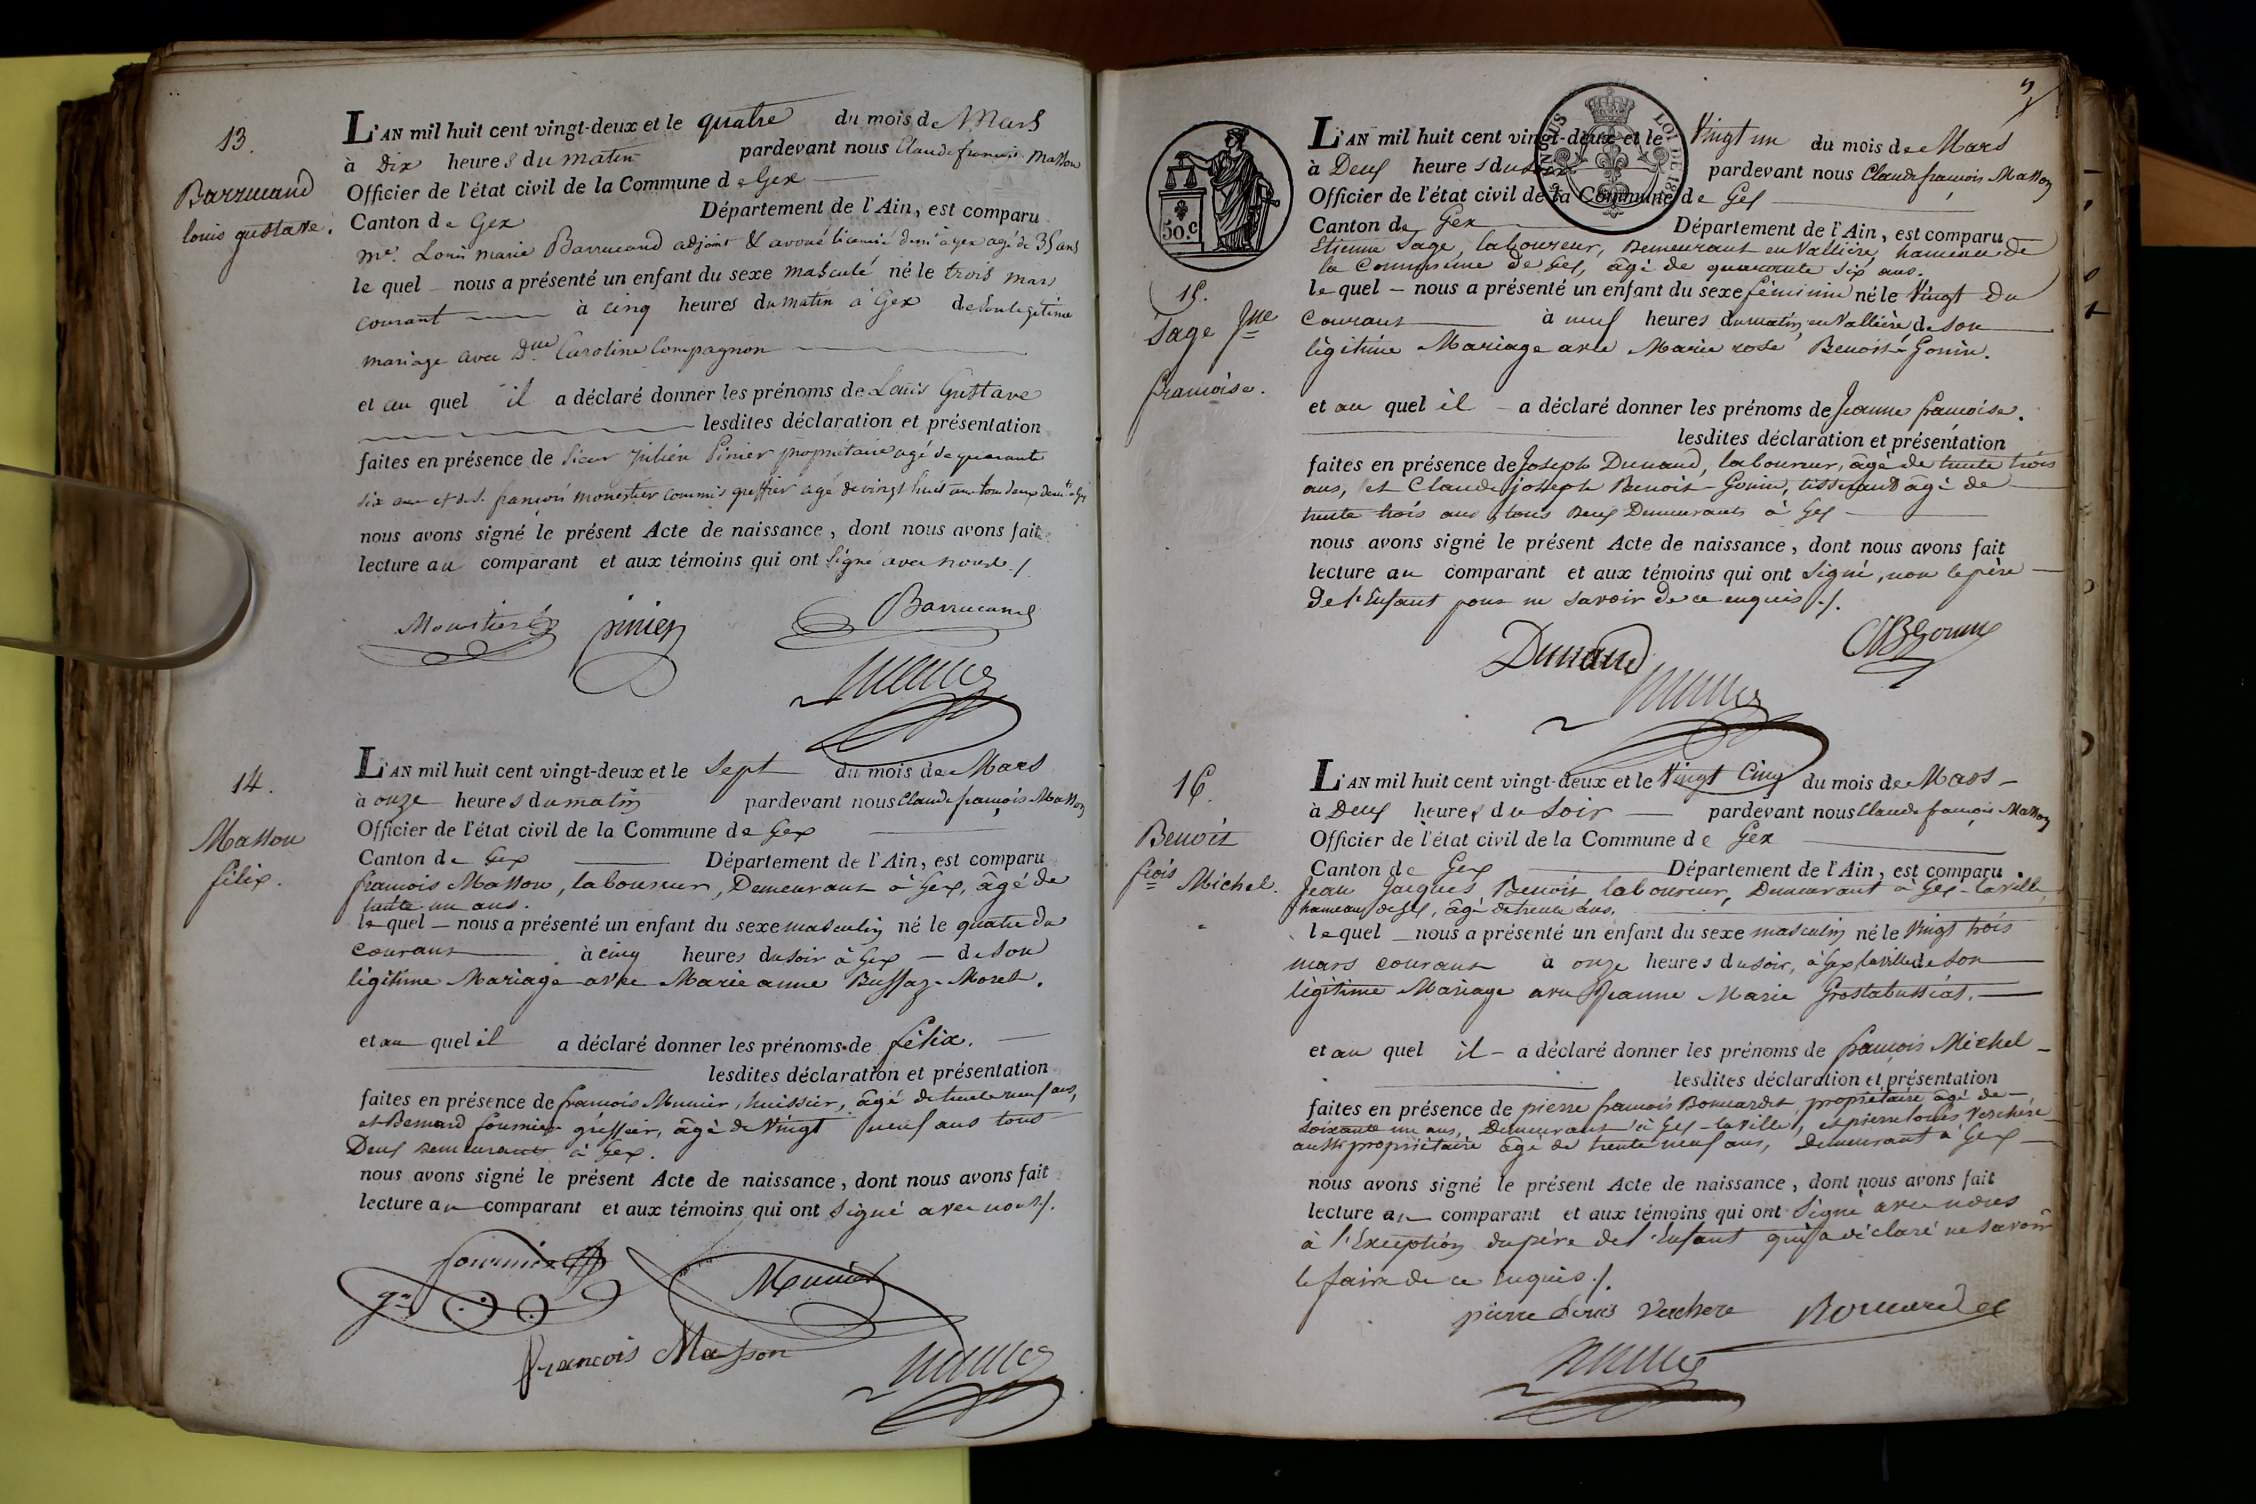 13.
Barrucand
louis gustave.
L'AN mil huit cent vingt-deux et le quatre du mois de Mars
à dix heures du matin pardevant nous Claude françois Masson
Officier de l'état civil de la Commune de Gex
Canton de Gex Département de l'Ain, est comparu
me. Louis marie Barrucand adjoint & avoué licencié à gex agé de 35 ans
le quel nous a présenté un enfant du sexe masculé né le trois mars
courant à cinq heures du matin à Gex de son legitime
mariage avec Dlle Caroline Compagnon
et au quel il a déclaré donner les prénoms de Louis Gustave
lesdites déclaration et présentation
faites en présence de Sieur julien Pinier propriétaire agé de quarante
six ans et de S. françois monestier commis greffier agé de vingt huit ans tous deux
nous avons signé le présent Acte de naissance, dont nous avons fait
lecture au comparant et aux témoins qui ont signé avec nous./.
Barrucand
pinier
14.
Masson
félix.
L'AN mil huit cent vingt-deux et le sept du mois de Mars
à onze heures du matin pardevant nous Claude françois Masson
Officier de l'état civil de la Commune de Gex
Canton de Gex Département de l'Ain, est comparu
françois Masson, laboureur, Demeurant à Gex, âgé de
trente un ans.
le quel — nous a présenté un enfant du sexe masculin né le quatre du
courant à cinq heures du soir à Gex — de son
légitime Mariage avec Marie anne Bussaz-Moret.
et au quel il a déclaré donner les prénoms de félix.
lesdites déclaration et présentation
faites en présence de françois Munier, huissier, âgé de trente neuf ans,
et Bernard fournier greffier, âgé de Vingt neuf ans tous
Deux demeurants à Gex.
nous avons signé le présent Acte de naissance, dont nous avons fait
lecture au comparant et aux témoins qui ont signé avec nous/.
fournier
Munier
françois Masson
LOI DE 18
50.c
15.
Sage Jne
françoise.
L'AN mil huit cent vingt-deux et le Vingt un du mois de Mars
à Deux heures du soir pardevant nous Claude françois Masson
Officier de l'état civil de la Commune de Gex
Canton de Gex Département de l'Ain, est comparu
Etienne Sage, laboureur, Demeurant en Vallière, hameau de
la Commune de Gex, âgé de quarante six ans.
le quel — nous a présenté un enfant du sexe féminin né le Vingt du
courant à neuf heures du matin, en Vallière, de son
légitime Mariage avec Marie rose Benoit-Gonin.
et au quel il — a déclaré donner les prénoms de Jeanne françoise.
lesdites déclaration et présentation
faites en présence de Joseph Dunand, laboureur, âgé de trente trois
ans, et Claude joseph Benoit-Gonin, tisserand âgé de
trente trois ans, tous Deux Demeurants à Gex
nous avons signé le présent Acte de naissance, dont nous avons fait
lecture au comparant et aux témoins qui ont signé, non le père
de l'Enfant pour ne savoir de ce enquis./.
Dunand
16.
Benoit
frois Michel.
L'AN mil huit cent vingt-deux et le Vingt Cinq du mois de Mars
à Deux heures du soir pardevant nous Claude françois Masson
Officier de l'état civil de la Commune de Gex
Canton de Gex Département de l'Ain, est comparu
Jean Jacques Benoit laboureur, Demeurant à Gex-laville,
hameau de Gex, âgé de trente ans.
le quel nous a présenté un enfant du sexe masculin né le Vingt trois
mars courant à onze heures du soir, à Gex laville de son
légitime Mariage avec Jeanne Marie Grostabussiat.
et au quel il — a déclaré donner les prénoms de françois Michel
lesdites déclaration et présentation
faites en présence de pierre françois Bouvardet, propriétaire âgé de
soixante un ans, Demeurant à Gex-laville, et pierre louis Verchère
aussi propriétaire âgé de trente neuf ans, demeurant à Gex
nous avons signé le présent Acte de naissance, dont nous avons fait
lecture au comparant et aux témoins qui ont signé avec nous
à l'Exception du père de l'Enfant qui a déclaré ne savoir
le faire de ce enquis./.
pierre Louis Verchere